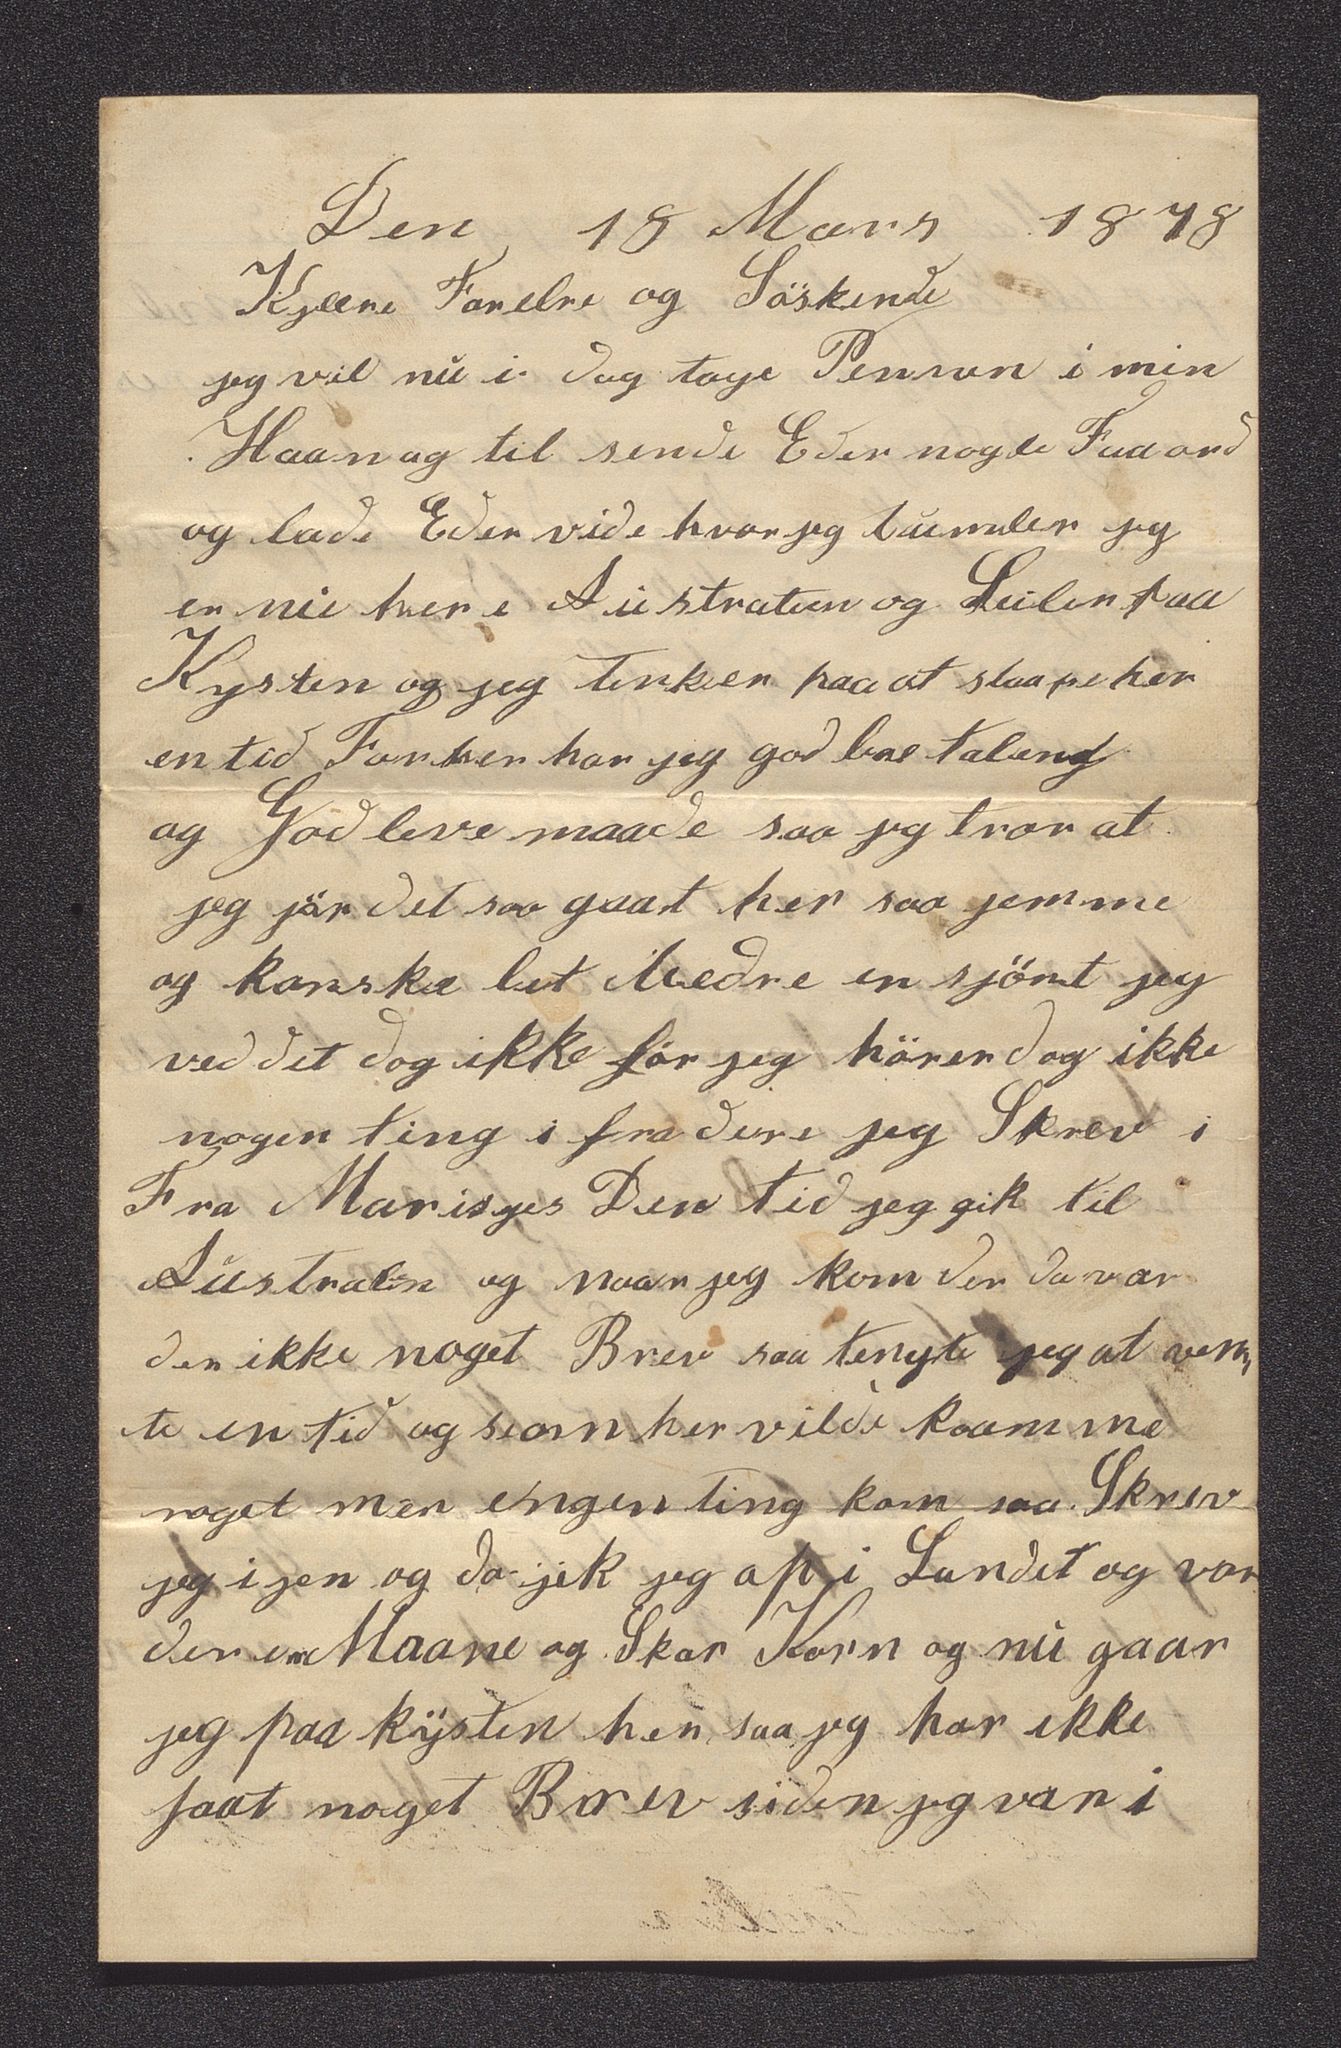 Den 18 Mars 1878
Kjære Forelre og Söskende
jeg vil nu i dag tage Pennan i min
Haan og til sende Eder nogle Faa ord
og lade Eder vide hvor jeg tumler jeg
er nu her i Australien og Seiler paa
Kysten og jeg tenker paa at staape her
en tid For her har jeg god betaling
og God leve maade saa jeg tror at
jeg jör det saa gaat her saa jemme
og kanske let bedre en sjönt jeg
ved det dog ikke för jeg hörer dog ikke
nogen ting i fra dere jeg Skrev i
Fra Marisjes Den tid jeg gik til
Australin og naar jeg kom der da var
der ikke noget Brev saa tengte jeg at ven
te en tid og som her vilde kaamme
noget men engen ting kom saa Skrev
jeg i jen og da jek jeg op i Landet og var
der en Maane og Skar Korn og nu gaar
jeg paa kysten hen saa jeg har ikke
faat noget Brev siden jeg var i